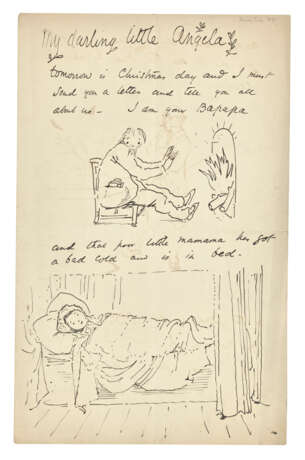 My darling little Angela
tomorrow is Christmas day and I must
send you a letter and tell you all
about us - I am your Bapapa
and that poor little mamama has got
a bad cold and is in bed.